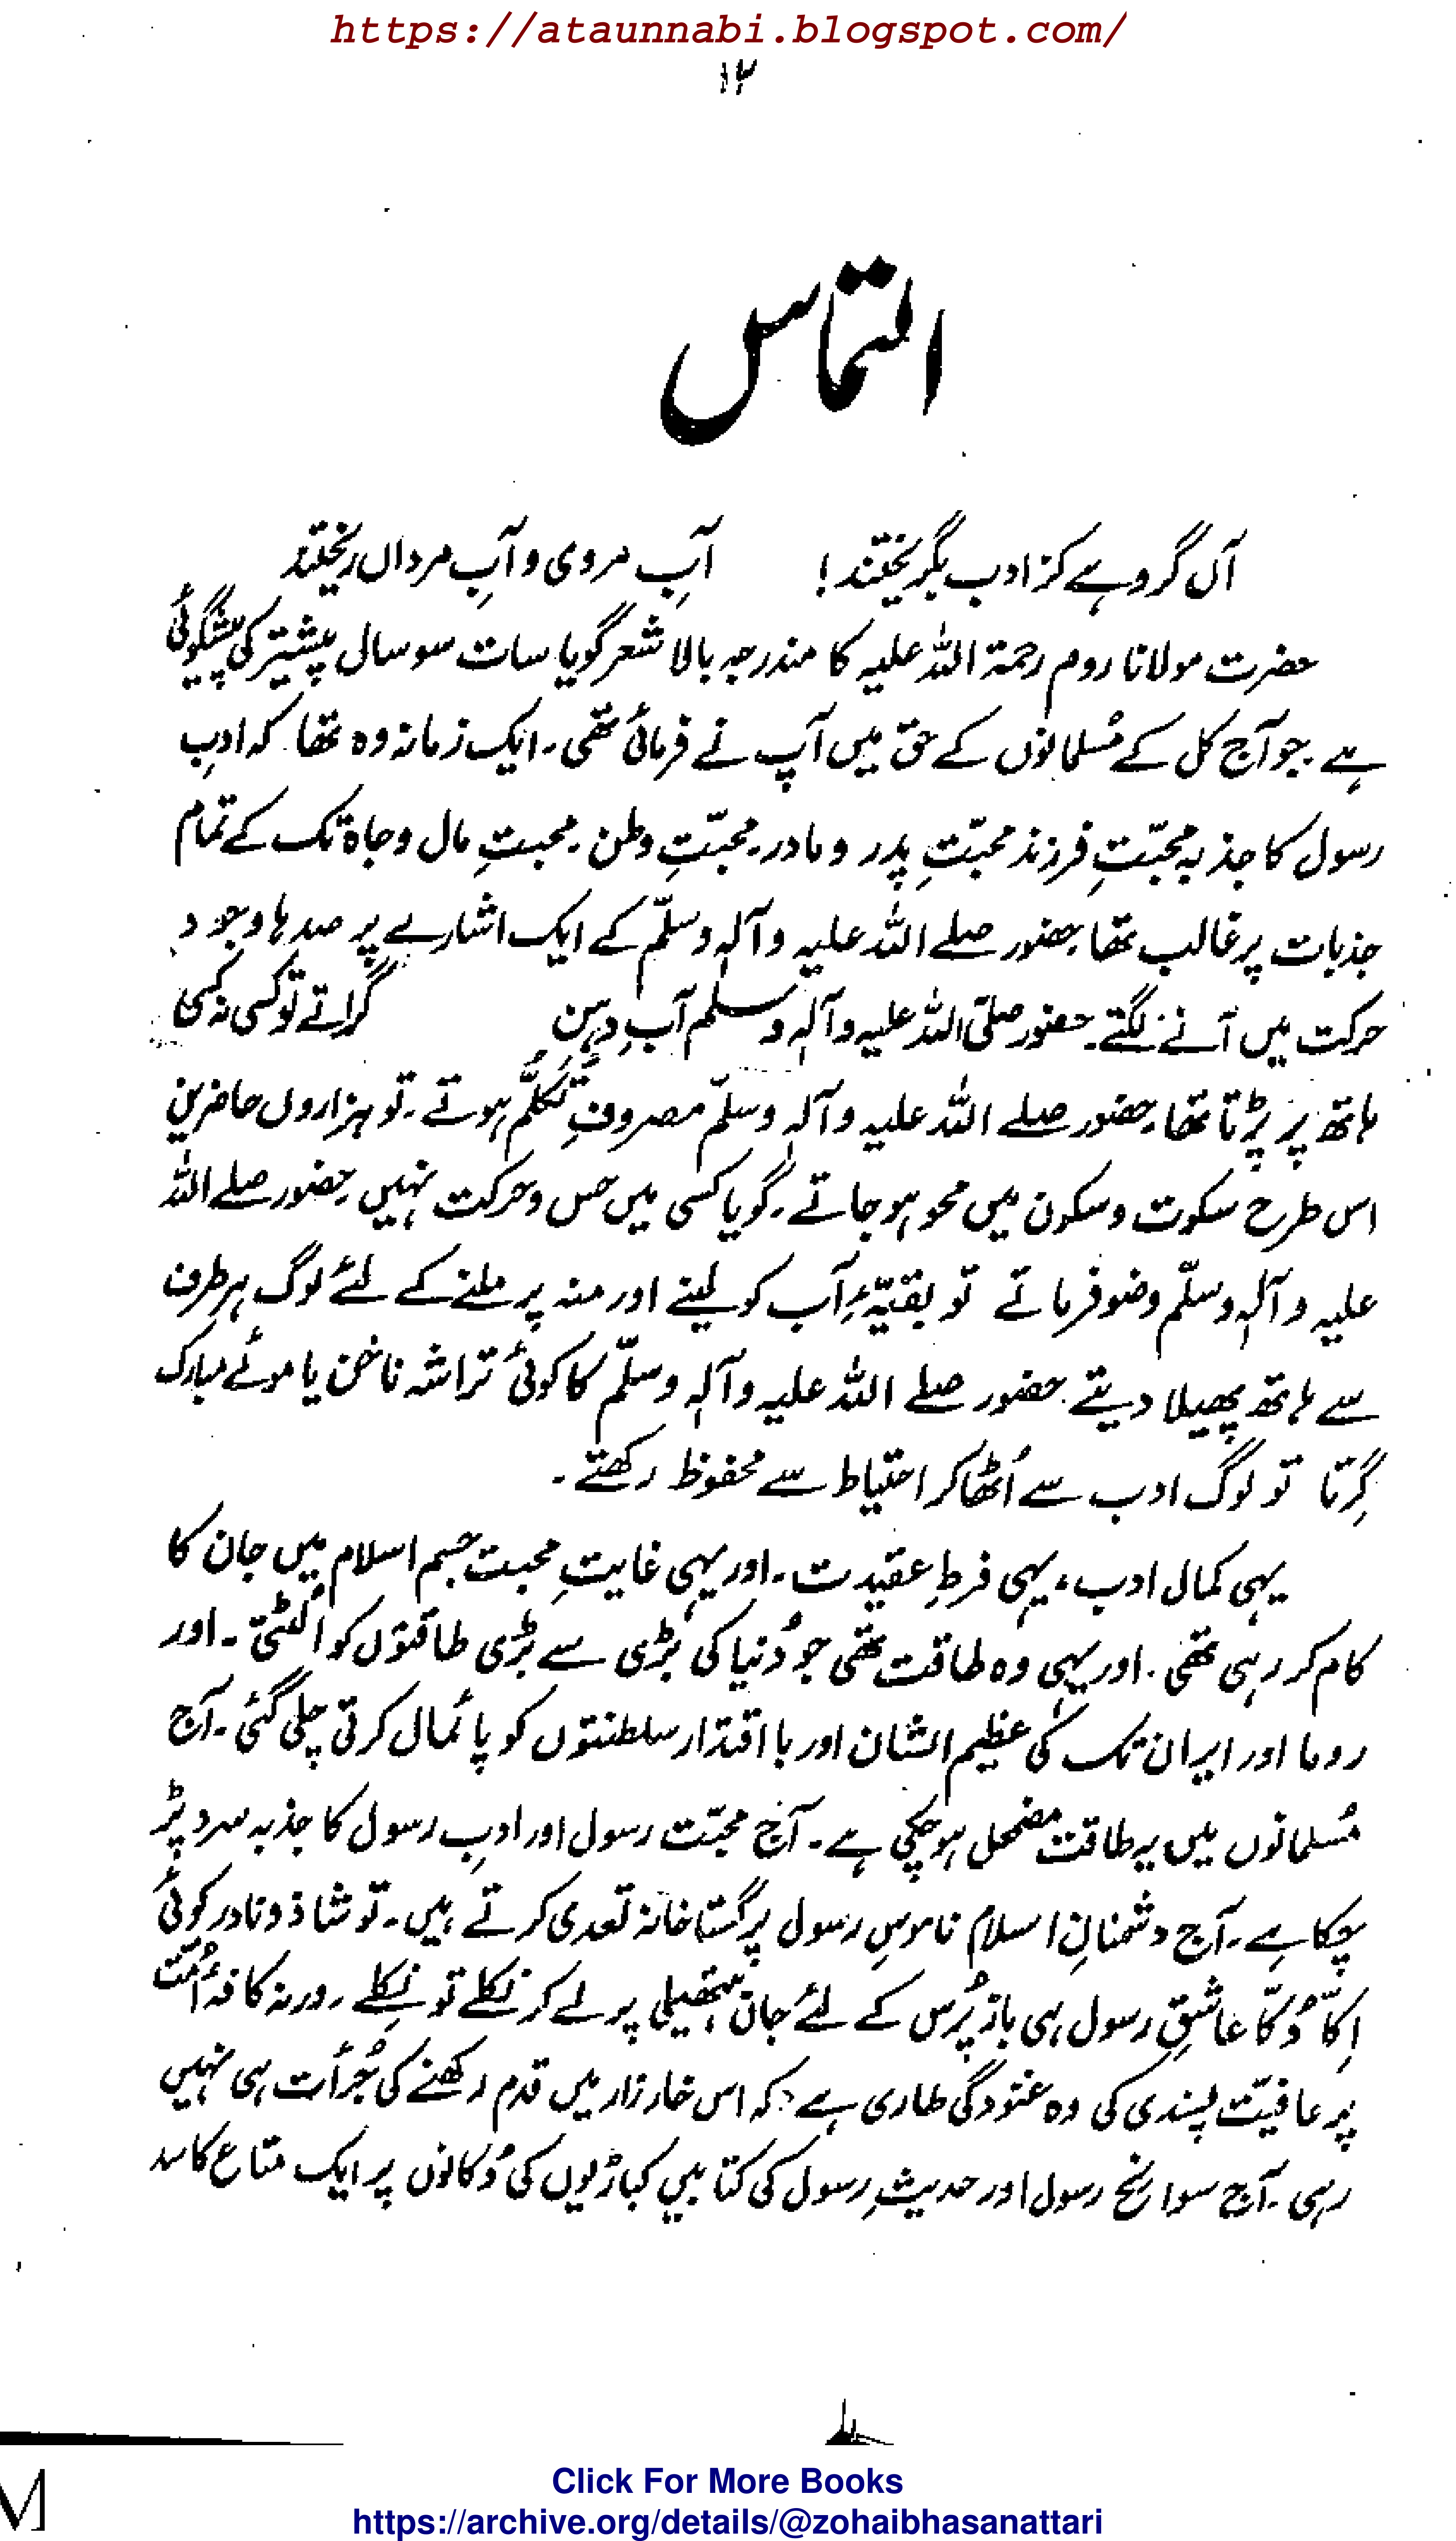 https://ataunnabi.blogspot.com/
۱۳
التماس
آں گروہے کز ادب بگریختند! آبِ مروی و آبِ مرداں ریختند
حضرت مولانا روم رحمۃ اللہ علیہ کا مندرجہ بالا شعر گویا سات سو سال پیشتر کی پیشگوئی
ہے۔ جو آج کل کے مُسلمانوں کے حق میں آپ نے فرمائی تھی۔ ایک زمانہ وہ تھا۔ کہ ادبِ
رسول کا جذبہ محبّتِ فرزند محبّتِ پدر و مادر۔ محبّتِ وطن۔ محبتِ مال و جاہ تک کے تمام
جذبات پر غالب تھا۔ حضور صلے اللہ علیہ وآلہٖ وسلّم کے ایک اشارے پر صدہا وجود
حرکت میں آنے لگتے۔ حضور صلّی اللہ علیہ وآلہٖ وسلم آبِ دہن گراتے تو کسی نہ کسی
ہاتھ پر پڑتا تھا۔ حضور صلے اللہ علیہ وآلہٖ وسلّم مصروفِ تکلُّم ہوتے۔ تو ہزاروں حاضرین
اس طرح سکوت و سکون میں محو ہو جاتے۔ گویا کسی میں حس و حرکت نہیں۔ حضور صلے اللہ
علیہ وآلہٖ وسلّم وضو فرماتے تو بقیّہءِ آب کو لینے اور منہ پر ملنے کے لئے لوگ ہر طرف
سے ہاتھ پھیلا دیتے۔ حضور صلے اللہ علیہ وآلہٖ وسلّم کا کوئی تراشہ ناخن یا موئے مبارک
گِرتا تو لوگ ادب سے اُٹھا کر احتیاط سے محفوظ رکھتے۔
یہی کمال ادب، یہی فرطِ عقیدت۔ اور یہی غایتِ محبت جسم اسلام میں جان کا
کام کر رہی تھی۔ اور یہی وہ طاقت تھی جو دُنیا کی بڑی سے بڑی طاقتوں کو اُلٹتی۔ اور
روما اور ایران تک کی عظیم الشان اور با اقتدار سلطنتوں کو پائمال کرتی چلی گئی۔ آج
مُسلمانوں میں یہ طاقت مضمحل ہو چکی ہے۔ آج محبّت رسول اور ادبِ رسول کا جذبہ سرد پڑ
چکا ہے۔ آج دشمنانِ اسلام ناموسِ رسول پر گستاخانہ تعدی کرتے ہیں۔ تو شاذ و نادر کوئی
اِکّا دُکّا عاشقِ رسول ہی باز پُرس کے لئے جان ہتھیلی پر لے کر نکلے تو نکلے۔ ورنہ کافۂ اُمّت
پر عافیّت پسندی کی وہ غنودگی طاری ہے کہ اس خارزار میں قدم رکھنے کی جُرأت ہی نہیں
رہی۔ آج سوانح رسول اور حدیثِ رسول کی کتابیں کباڑیوں کی دُکانوں پر ایک متاع کاسد
Click For More Books
https://archive.org/details/@zohaibhasanattari